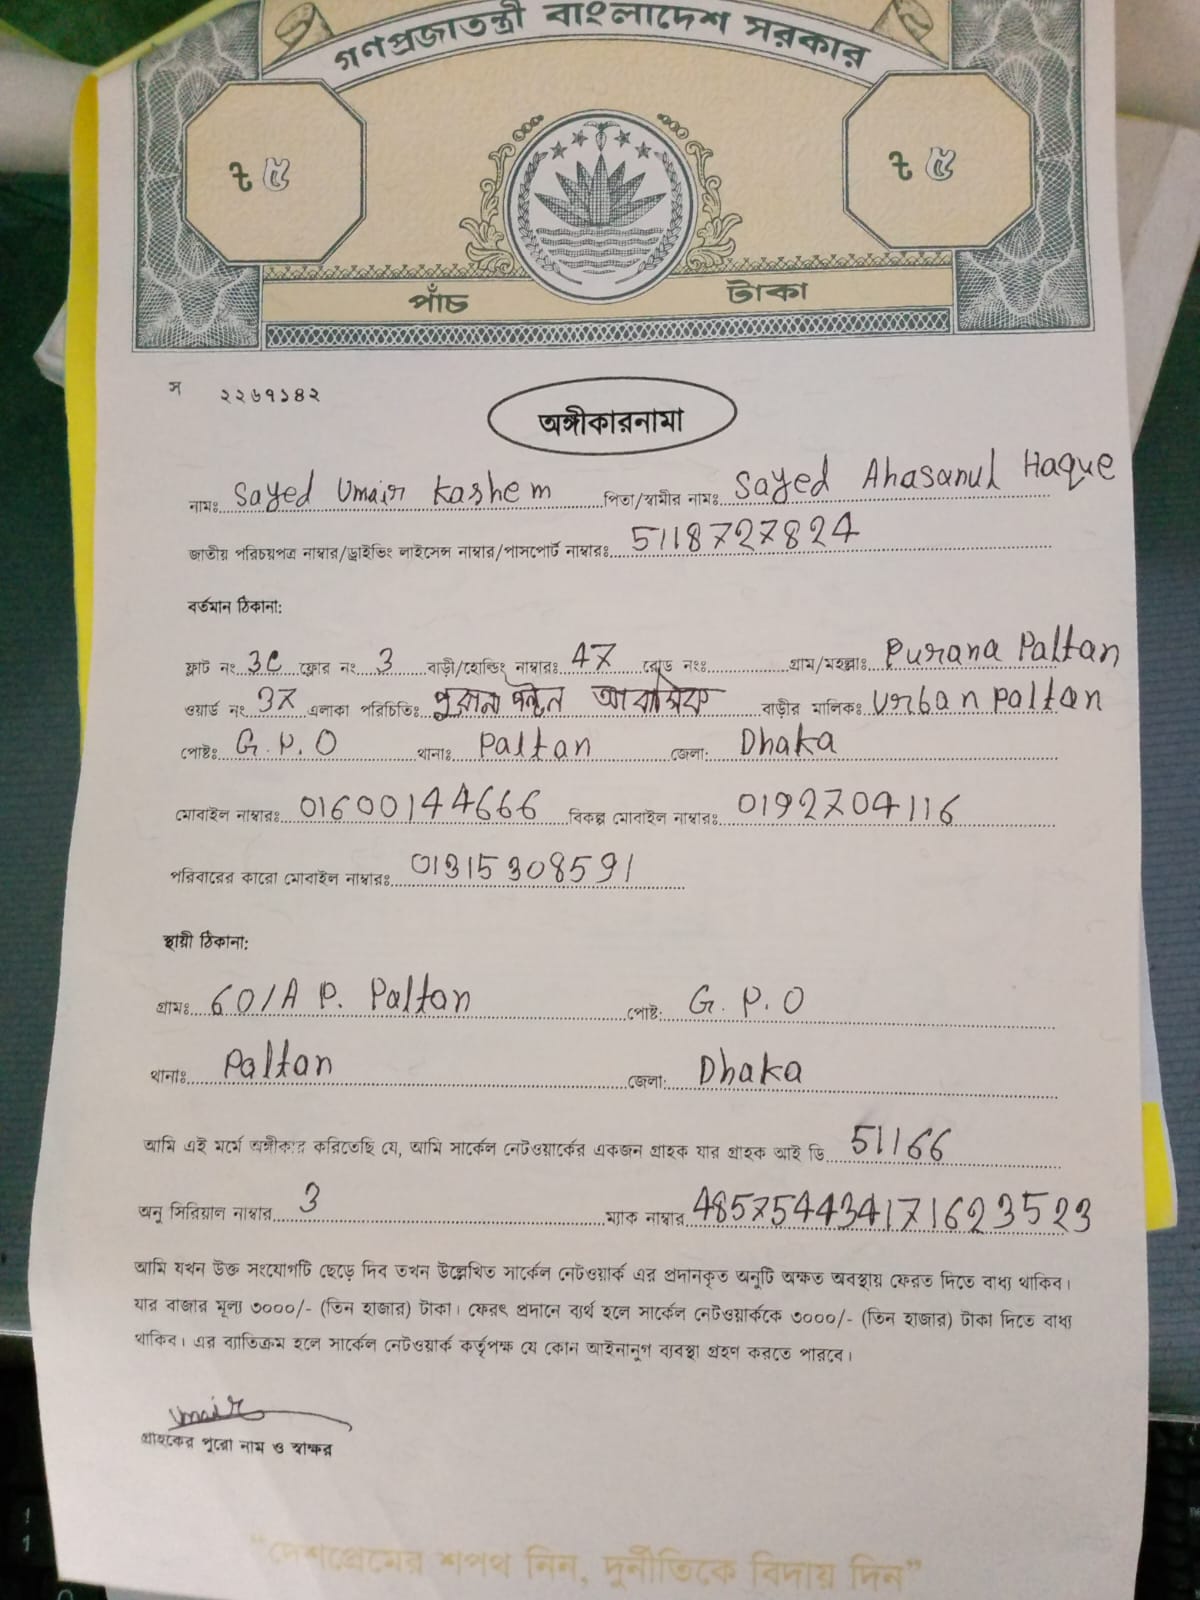 গণপ্রজাতন্ত্রী বাংলাদেশ সরকার
৳ ৫ ৳ ৫
পাঁচ টাকা
স ২২৬৭১৪২
অঙ্গীকারনামা
নামঃ Sayed Umair Kashem পিতা/স্বামীর নামঃ Sayed Ahasanul Haque
জাতীয় পরিচয়পত্র নাম্বার/ড্রাইভিং লাইসেন্স নাম্বার/পাসপোর্ট নাম্বারঃ 5118727824
বর্তমান ঠিকানা:
ফ্লাট নং 3C ফ্লোর নং 3 বাড়ী/হোল্ডিং নাম্বারঃ 47 রোড নংঃ গ্রাম/মহল্লাঃ Purana Paltan
ওয়ার্ড নং 37 এলাকা পরিচিতিঃ পুরানা পল্টন আবাসিক বাড়ীর মালিকঃ Urban Paltan
পোষ্টঃ G.P.O থানাঃ Paltan জেলা: Dhaka
মোবাইল নাম্বারঃ 01600144666 বিকল্প মোবাইল নাম্বারঃ 0192704116
পরিবারের কারো মোবাইল নাম্বারঃ 01315308591
স্থায়ী ঠিকানা:
গ্রামঃ 60/A P. Paltan পোষ্ট: G.P.O
থানাঃ Paltan জেলা: Dhaka
আমি এই মর্মে অঙ্গীকার করিতেছি যে, আমি সার্কেল নেটওয়ার্কের একজন গ্রাহক যার গ্রাহক আই ডি 51166
অনু সিরিয়াল নাম্বার 3 ম্যাক নাম্বার 485754434171623523
আমি যখন উক্ত সংযোগটি ছেড়ে দিব তখন উল্লেখিত সার্কেল নেটওয়ার্ক এর প্রদানকৃত অনুটি অক্ষত অবস্থায় ফেরত দিতে বাধ্য থাকিব।
যার বাজার মূল্য ৩০০০/- (তিন হাজার) টাকা। ফেরৎ প্রদানে ব্যর্থ হলে সার্কেল নেটওয়ার্ককে ৩০০০/- (তিন হাজার) টাকা দিতে বাধ্য
থাকিব। এর ব্যাতিক্রম হলে সার্কেল নেটওয়ার্ক কর্তৃপক্ষ যে কোন আইনানুগ ব্যবস্থা গ্রহণ করতে পারবে।
Umair
গ্রাহকের পুরো নাম ও স্বাক্ষর
"দেশপ্রেমের শপথ নিন, দুর্নীতিকে বিদায় দিন"